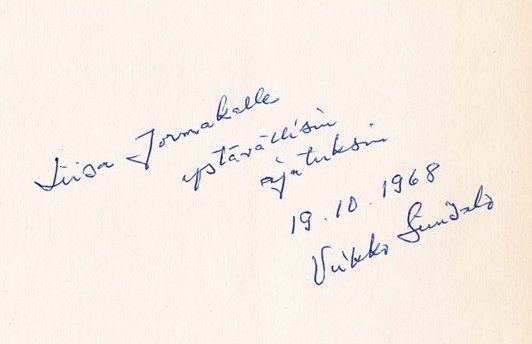 Liisa Jormakalle
ystävällisin
ajatuksin
19.10.1968
Veikko